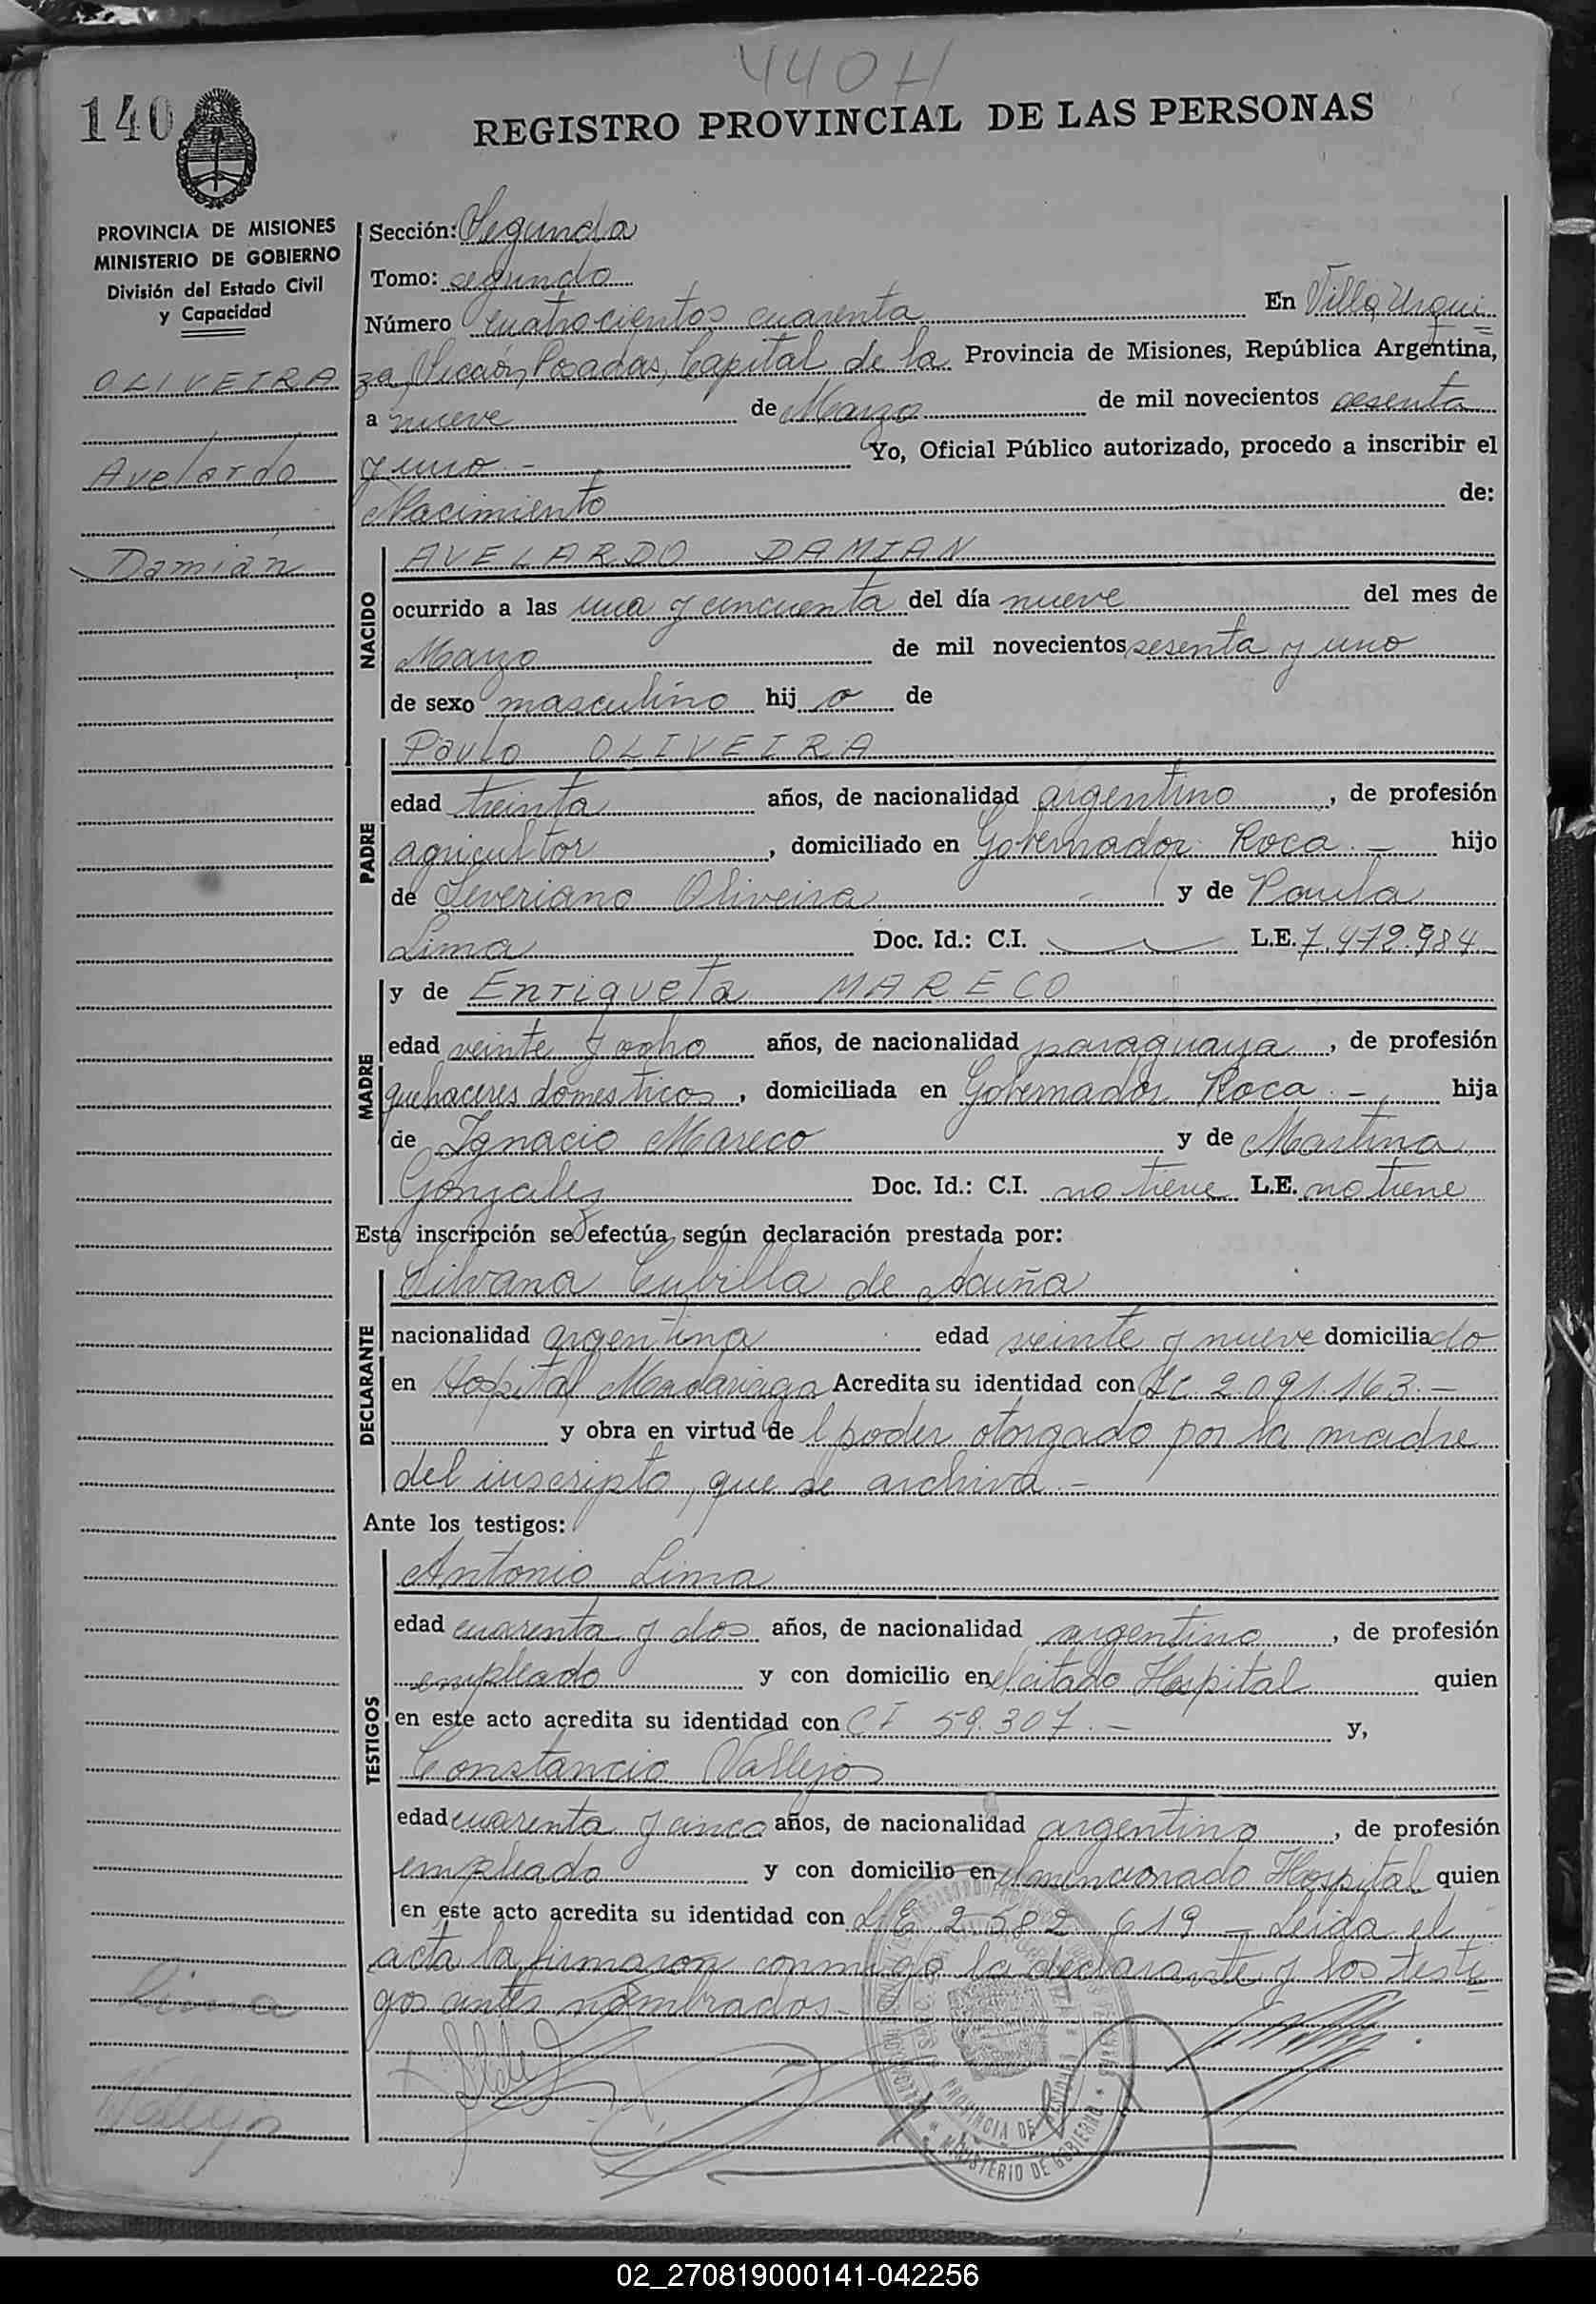 440 H
140
REGISTRO PROVINCIAL DE LAS PERSONAS
PROVINCIA DE MISIONES
MINISTERIO DE GOBIERNO
División del Estado Civil
y Capacidad
OLIVEIRA
Avelardo
Damián
Sección: Segunda
Tomo: segundo
Número cuatrocientos cuarenta En Villa Urqui=
za, Sección, Posadas, Capital de la Provincia de Misiones, República Argentina,
a nueve de Marzo de mil novecientos sesenta
y uno - Yo, Oficial Público autorizado, procedo a inscribir el
Nacimiento de:
NACIDO
AVELARDO DAMIAN
ocurrido a las una y cincuenta del día nueve del mes de
Marzo de mil novecientos sesenta y uno
de sexo masculino hij o de
PADRE
Paulo OLIVEIRA
edad treinta años, de nacionalidad argentino, de profesión
agricultor, domiciliado en Gobernador Roca. - hijo
de Severiano Oliveira y de Paula
Lima Doc. Id.: C.I. L.E. 7.472.984
MADRE
y de Enriqueta MARECO
edad veinte y ocho años, de nacionalidad paraguaya, de profesión
quehaceres domesticos, domiciliada en Gobernador Roca. - hija
de Ignacio Mareco y de Martina
Gonzalez Doc. Id.: C.I. no tiene L.E. no tiene
Esta inscripción se efectúa según declaración prestada por:
DECLARANTE
Silvana Cubilla de Acuña
nacionalidad argentina edad veinte y nueve domiciliado
en Hospital Madariaga Acredita su identidad con LC 2.091.163. -
y obra en virtud de l poder otorgado por la madre
del inscripto, que se archiva. -
Ante los testigos:
TESTIGOS
Antonio Lima
edad cuarenta y dos años, de nacionalidad argentino, de profesión
empleado y con domicilio en el citado Hospital quien
en este acto acredita su identidad con CI 59.307. - y,
Constancio Vallejos
edad cuarenta y cinco años, de nacionalidad argentino, de profesión
empleado y con domicilio en el mencionado Hospital quien
en este acto acredita su identidad con L.E. 2.582.619 - Leida el
acta la firmaron conmigo la declarante y los testi=
gos antes nombrados. -
Lima
Vallejo
PROVINCIA DE MISIONES
MINISTERIO DE GOBIERNO
02_270819000141-042256